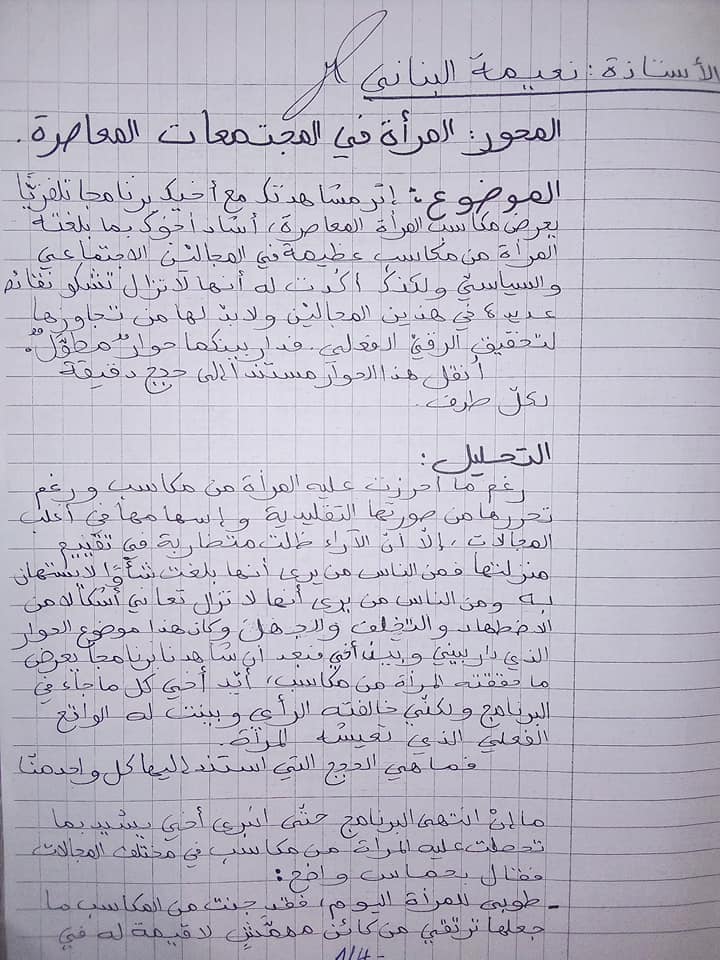 الأستاذة: نعيمة البناني
المحور: المرأة في المجتمعات المعاصرة.
الموضوع: إثر مشاهدتك مع أخيك برنامجا تلفزيّا
يعرض مكاسب المرأة المعاصرة، أشاد أخوك بما بلغته
المرأة من مكاسب عظيمة في المجالين الاجتماعي
والسياسيّ ولكنّك أكّدت له أنها لا تزال تشكو نقائص
عديدة في هذين المجالين ولابدّ لها من تجاوزها
لتحقيق الرقيّ الفعلي. فدار بينكما حوار مطوّل.
أنقل هذا الحوار مستندا إلى حجج دقيقة
لكلّ طرف.
التحليل:
رغم ما أحرزت عليه المرأة من مكاسب ورغم
تحررها من صورتها التقليدية وإسهامها في أغلب
المجالات، إلاّ أنّ الآراء ظلت متضاربة في تقييم
منزلتها فمن الناس من يرى أنها بلغت شأوًا لا يستهان
به ومن الناس من يرى أنها لا تزال تعاني أشكالا من
الاضطهاد والتخلف والجهل وكان هذا موضوع الحوار
الذي دار بيني وبين أخي فبعد أن شاهدنا برنامجا يعرض
ما حققته المرأة من مكاسب، أيّد أخي كل ما جاء في
البرنامج ولكنّي خالفته الرأي وبينت له الواقع
الفعلي الذي تعيشه المرأة.
فما هي الحجج التي استند إليها كل واحد منّا
ما إنْ انتهى البرنامج حتّى انبرى أخي يشيد بما
تحصلت عليه المرأة من مكاسب في مختلف المجالات
فقال بحماس واضح:
- طوبى للمرأة اليوم، فقد جنت من المكاسب ما
جعلها ترتقي من كائن مهمّشٍ لا قيمة له في
1/4-